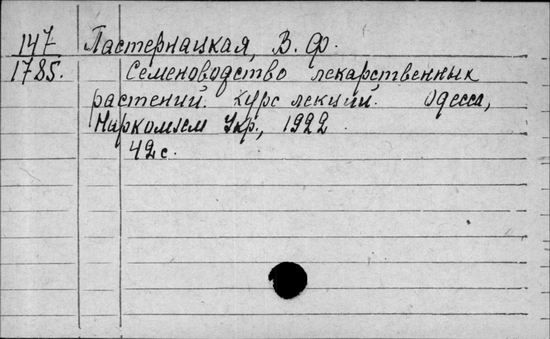 147 Пастернацкая, В. Ф.
1785. Семеноводство лекарственных
растений. Курс лекций. Одесса,
Наркомзем Укр., 1922.
42 с.